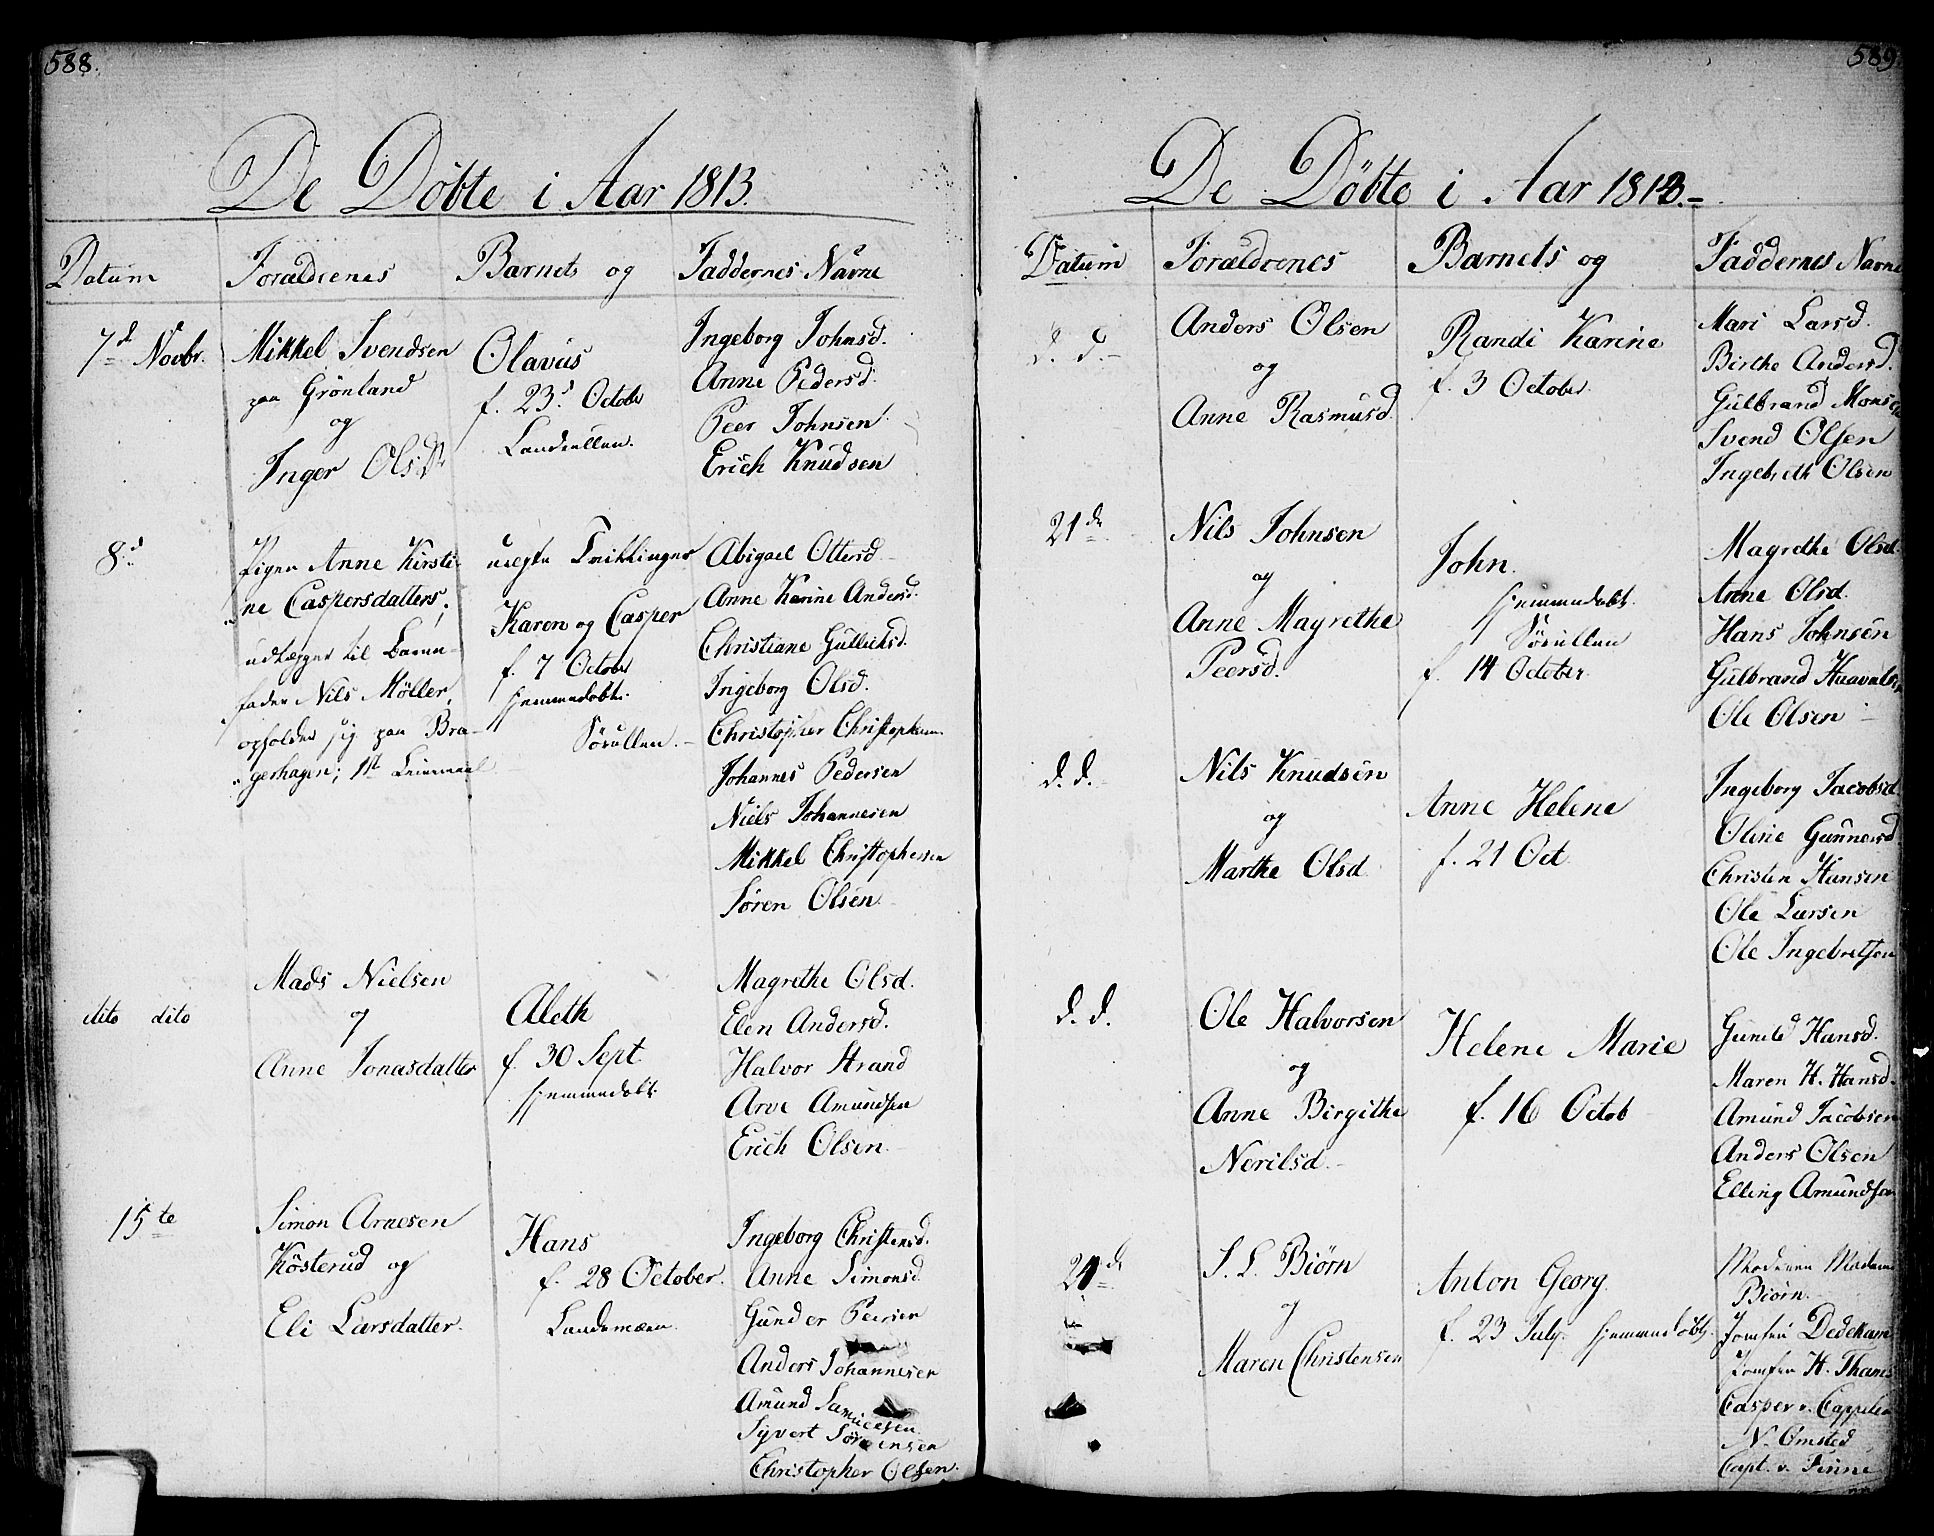 588.
De Döbte i Aar 1813.
Datum
Forældrenes
Barnets og
Faddernes Navne
7d Novbr.
Mikkel Svendsen
paa Grönland
og
Inger Olsdr
Olavus
f. 23d Octobr
Ingeborg Johnsd.
Anne Pedersd.
Peer Johnsen
Erich Knudsen
8d
Pigen Anne Kirsti-
ne Caspersdatters,
udlægger til Barne-
fader Nils Möller,
opholder sig paa Bra-
gerhagen; 1st Leiermaal
uægte Tvillinger
Karen og Casper
f. 7 Octobr
hjemmedöbt.
Abigael Ottersd
Anne Karine Andersd.
Christiane Gullichsd.
Ingeborg Olsd.
Christopher Christophersen
Johannes Pedersen
Niels Johannesen
Mikkel Christophersen
Sören Olsen
dito dito
Mads Nielsen
og
Anne Jonasdatter
Aleth
f. 30 Sept.
hjemmedöbt
Magrethe Olsd.
Elen Andersd.
Halvor Strand
Arve Amundsen
Erich Olsen
15te
Simon Arnesen
Kösterud og
Eli Larsdatter.
Hans
f. 28 October.
Ingeborg Christensd.
Anne Simonsd
Gunder Peersen
Anders Johannesen
Amund Samuelsen
Syvert Sörensen
Christopher Olsen.
589
De Döbte i Aar 1813.-
Datum
Forældrenes
Barnets og
Faddernes Navne
d. d.
Anders Olsen
og
Anne Rasmusd.
Randi Karine
f. 3 October
Mari Larsd.
Birthe Andersd.
Gulbrand Monsen
Svend Olsen
Ingebreth Olsen
21de
Nils Johnsen
og
Anne Magrethe
Peersd.
John.
hjemmedöbt.
f. 14 October
Magrethe Olsd.
Anne Olsd.
Hans Johnsen
Gulbrand
Ole Olsen
d. d.
Nils Knudsen
og
Marthe Olsd
Anne Helene
f. 21 Oct.
Ingeborg Jacobsd
Oline Gunnersd
Christen Hansen
Ole Larsen
Ole Ingebretsen
d. d.
Ole Halvorsen
og
Anne Birgithe
Nerilsd.
Helene Marie
f. 16 Octob
Gunild Hansd.
Maren H. Hansd.
Amund Jacobsen
Anders Olsen
Elling Amundsen
S. L. Biörn
og
Maren Christensen
Anton Georg
f. 23 July. hjemmedöbt
Moderen Madame
Biörn.
Jomfru Dedekam
Jomfru H. Thams
Casper v. Cappelen
N. Omsted
Capt. v. Finne